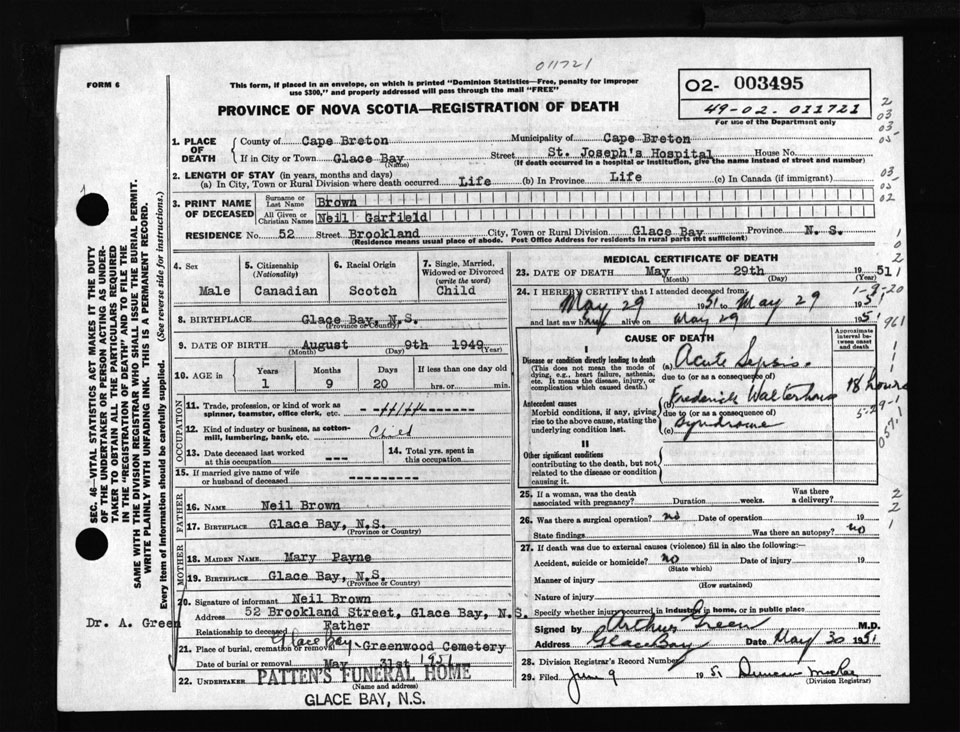 011721
FORM 6
This form, if placed in an envelope, on which is printed "Dominion Statistics—Free, penalty for improper
use $300," and properly addressed will pass through the mail "FREE"
PROVINCE OF NOVA SCOTIA—REGISTRATION OF DEATH
02- 003495
49-02. 011721
For use of the Department only
1. PLACE OF DEATH
County of Cape Breton Municipality of Cape Breton
If in City or Town Glace Bay Street St. Joseph's Hospital House No.
(Name) (If death occurred in a hospital or institution, give the name instead of street and number)
2. LENGTH OF STAY (in years, months and days)
(a) In City, Town or Rural Division where death occurred Life (b) In Province Life (c) In Canada (if immigrant)
3. PRINT NAME OF DECEASED
Surname or Last Name Brown
All Given or Christian Names Neil Garfield
RESIDENCE No. 52 Street Brookland City, Town or Rural Division Glace Bay Province N. S.
(Residence means usual place of abode. Post Office Address for residents in rural parts not sufficient)
4. Sex
Male
5. Citizenship
(Nationality)
Canadian
6. Racial Origin
Scotch
7. Single, Married,
Widowed or Divorced
(write the word)
Child
8. BIRTHPLACE Glace Bay, N.S.
(Province or Country)
9. DATE OF BIRTH August 9th 1949
(Month) (Day) (Year)
10. AGE in
Years Months Days If less than one day old
1 9 20 hrs. or min.
OCCUPATION
11. Trade, profession, or kind of work as
spinner, teamster, office clerk, etc.
12. Kind of industry or business, as cotton-
mill, lumbering, bank, etc. Child
13. Date deceased last worked
at this occupation ---
14. Total yrs. spent in
this occupation
15. If married give name of wife
or husband of deceased ----------
FATHER
16. NAME Neil Brown
17. BIRTHPLACE Glace Bay, N.S.
(Province or Country)
MOTHER
18. MAIDEN NAME Mary Payne
19. BIRTHPLACE Glace Bay, N.S.
(Province or Country)
20. Signature of informant Neil Brown
Address 52 Brookland Street, Glace Bay, N.S.
Relationship to deceased Father
Dr. A. Green
21. Place of burial, cremation or removal Glace Bay - Greenwood Cemetery
Date of burial or removal May 31st 1951
22. UNDERTAKER PATTEN'S FUNERAL HOME
(Name and address)
GLACE BAY, N.S.
MEDICAL CERTIFICATE OF DEATH
23. DATE OF DEATH May 29th 1951
(Month) (Day) (Year)
24. I HEREBY CERTIFY that I attended deceased from:
May 29 1951 to May 29 1951
and last saw him alive on May 29 1951
CAUSE OF DEATH
Approximate
interval be-
tween onset
and death
I
Disease or condition directly leading to death
(This does not mean the mode of
dying, e.g., heart failure, asthenia,
etc. It means the disease, injury, or
complication which caused death.)
(a) Acute Sepsis.
due to (or as a consequence of)
Antecedent causes
Morbid conditions, if any, giving
rise to the above cause, stating the
underlying condition last.
(b) Frederick Waterhouse 18 hours
due to (or as a consequence of)
(c) Syndrome
II
Other significant conditions
contributing to the death, but not
related to the disease or condition
causing it.
25. If a woman, was the death
associated with pregnancy? Duration weeks. Was there
a delivery?
26. Was there a surgical operation? no Date of operation 19
State findings Was there an autopsy? no
27. If death was due to external causes (violence) fill in also the following:—
Accident, suicide or homicide? no Date of injury 19
(State which)
Manner of injury
(How sustained)
Nature of injury
Specify whether injury occurred in industry, in home, or in public place
Signed by Arthur Green M.D.
Address Glace Bay Date May 30 1951
28. Division Registrar's Record Number
29. Filed June 9 1951 Duncan McRae
(Division Registrar)
1-9-20
961
5-29-1
0571
SEC. 46—VITAL STATISTICS ACT MAKES IT THE DUTY
OF THE UNDERTAKER OR PERSON ACTING AS UNDER-
TAKER TO OBTAIN ALL THE PARTICULARS REQUIRED
IN THE "REGISTRATION OF DEATH" AND TO FILE THE
SAME WITH THE DIVISION REGISTRAR WHO SHALL ISSUE THE BURIAL PERMIT.
WRITE PLAINLY WITH UNFADING INK. THIS IS A PERMANENT RECORD.
Every item of information should be carefully supplied. (See reverse side for instructions.)